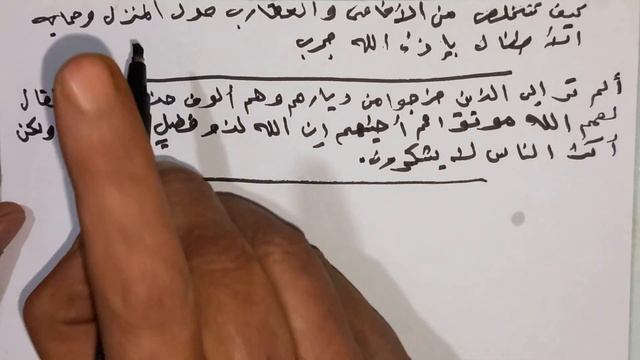 كيف تتخلص من الأفاعى والعقارب حول المنزل وحماية
الأطفال بإذن الله مجرب
ألم تر إلى الذين خرجوا من ديارهم وهم ألوف فقال
لهم الله موتوا ثم أحيهم إن الله لذو فضل ولكن
أكثر الناس لا يشكرون.